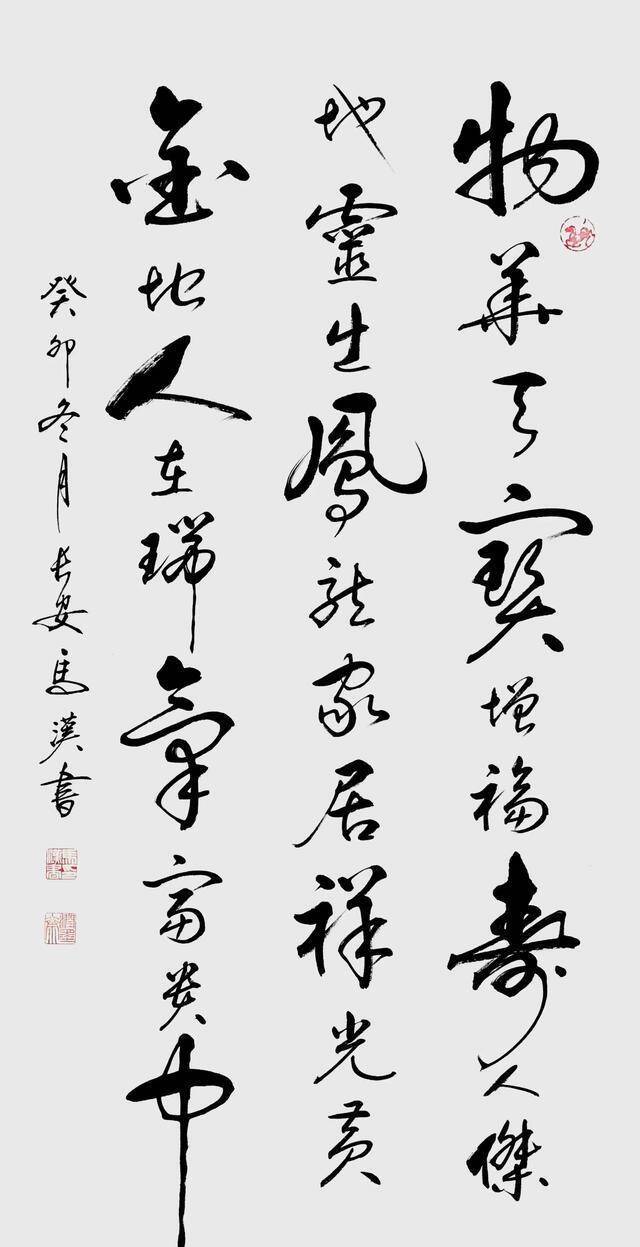 物華天寶增福壽人傑
地靈生鳳龍家居祥光黃
金地人在瑞氣富貴中
癸卯冬月長安馬漢書